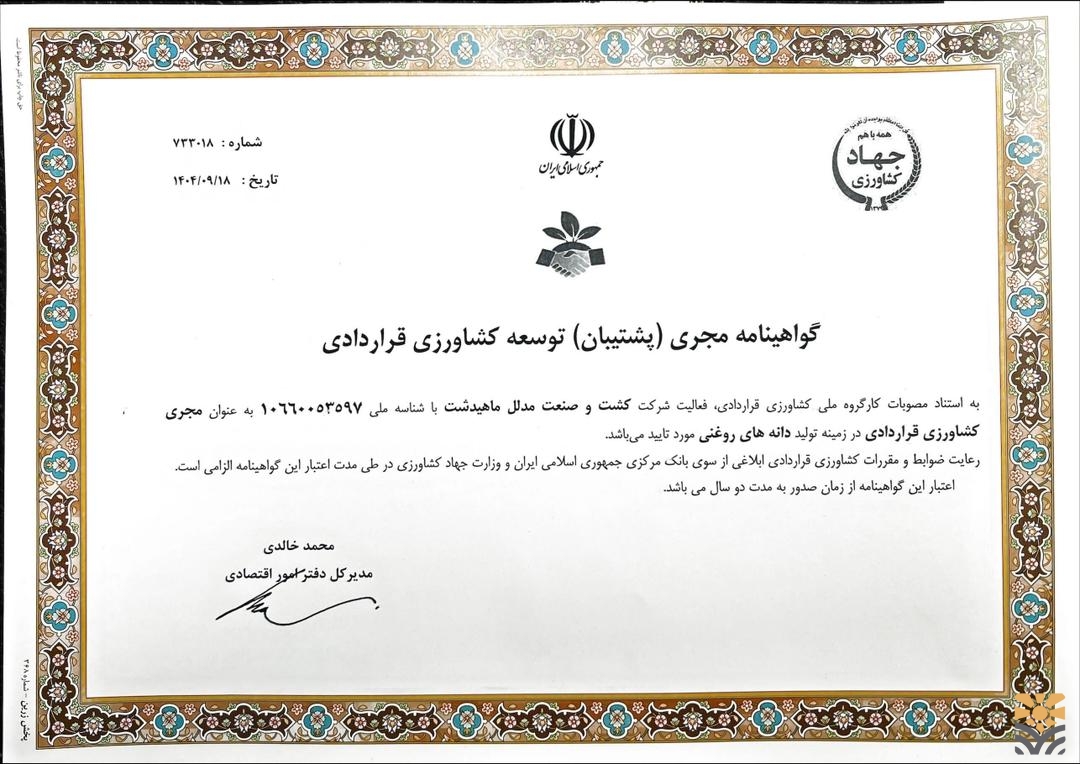 شماره : ۷۳۳۰۱۸
تاریخ : ۱۴۰۴/۰۹/۱۸
جمهوری اسلامی ایران
همه با هم
جهاد
کشاورزی
گواهینامه مجری (پشتیبان) توسعه کشاورزی قراردادی
به استناد مصوبات کارگروه ملی کشاورزی قراردادی، فعالیت شرکت کشت و صنعت مدلل ماهیدشت با شناسه ملی ۱۰۶۶۰۰۵۳۵۹۷ به عنوان مجری
کشاورزی قراردادی در زمینه تولید دانه های روغنی مورد تایید می‌باشد.
رعایت ضوابط و مقررات کشاورزی قراردادی ابلاغی از سوی بانک مرکزی جمهوری اسلامی ایران و وزارت جهاد کشاورزی در طی مدت اعتبار این گواهینامه الزامی است.
اعتبار این گواهینامه از زمان صدور به مدت دو سال می باشد.
محمد خالدی
مدیرکل دفتر امور اقتصادی
پخش زرین - شماره ۳۶۸
حق چاپ برای ناشر محفوظ است